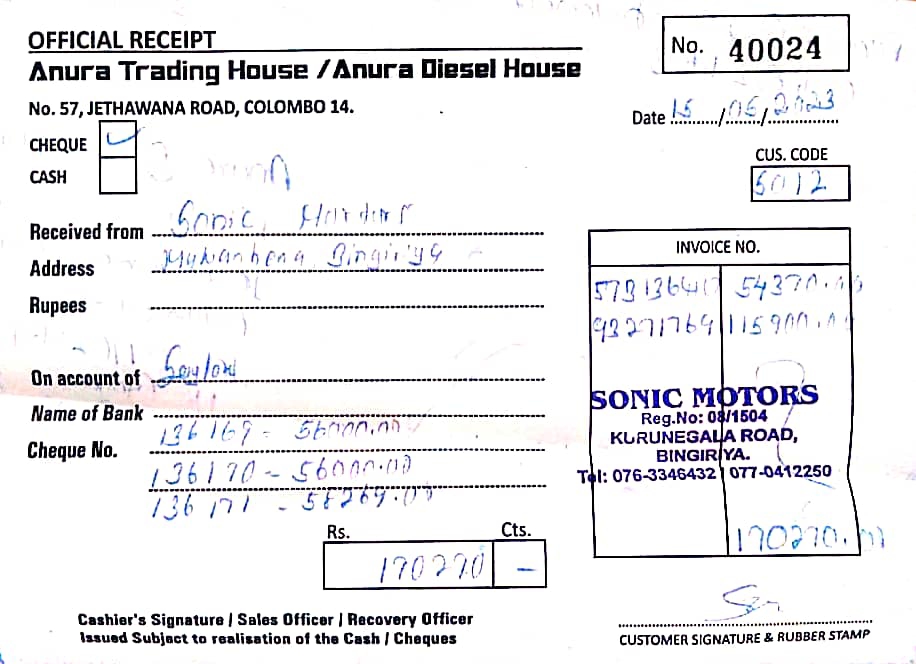 OFFICIAL RECEIPT
No. 40024
Anura Trading House / Anura Diesel House
No. 57, JETHAWANA ROAD, COLOMBO 14.
Date 15/05/2023
CHEQUE
CASH
CUS. CODE
5012
Received from Sonic
Address Bingiriya
Rupees
INVOICE NO.
54370.00
93271769 115900.00
On account of Seylon
Name of Bank
Cheque No. 136169 - 56000.00
136170 - 56000.00
136171 - 58269.00
SONIC MOTORS
Reg.No: 08/1504
KURUNEGALA ROAD,
BINGIRIYA.
Tel: 076-3346432 077-0412250
170270.00
Rs. Cts.
170270 –
Cashier's Signature / Sales Officer / Recovery Officer
Issued Subject to realisation of the Cash / Cheques
CUSTOMER SIGNATURE & RUBBER STAMP